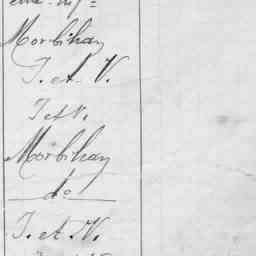 Morbihan
I. et. V.
I et V.
Morbihan
do
I. et. V.